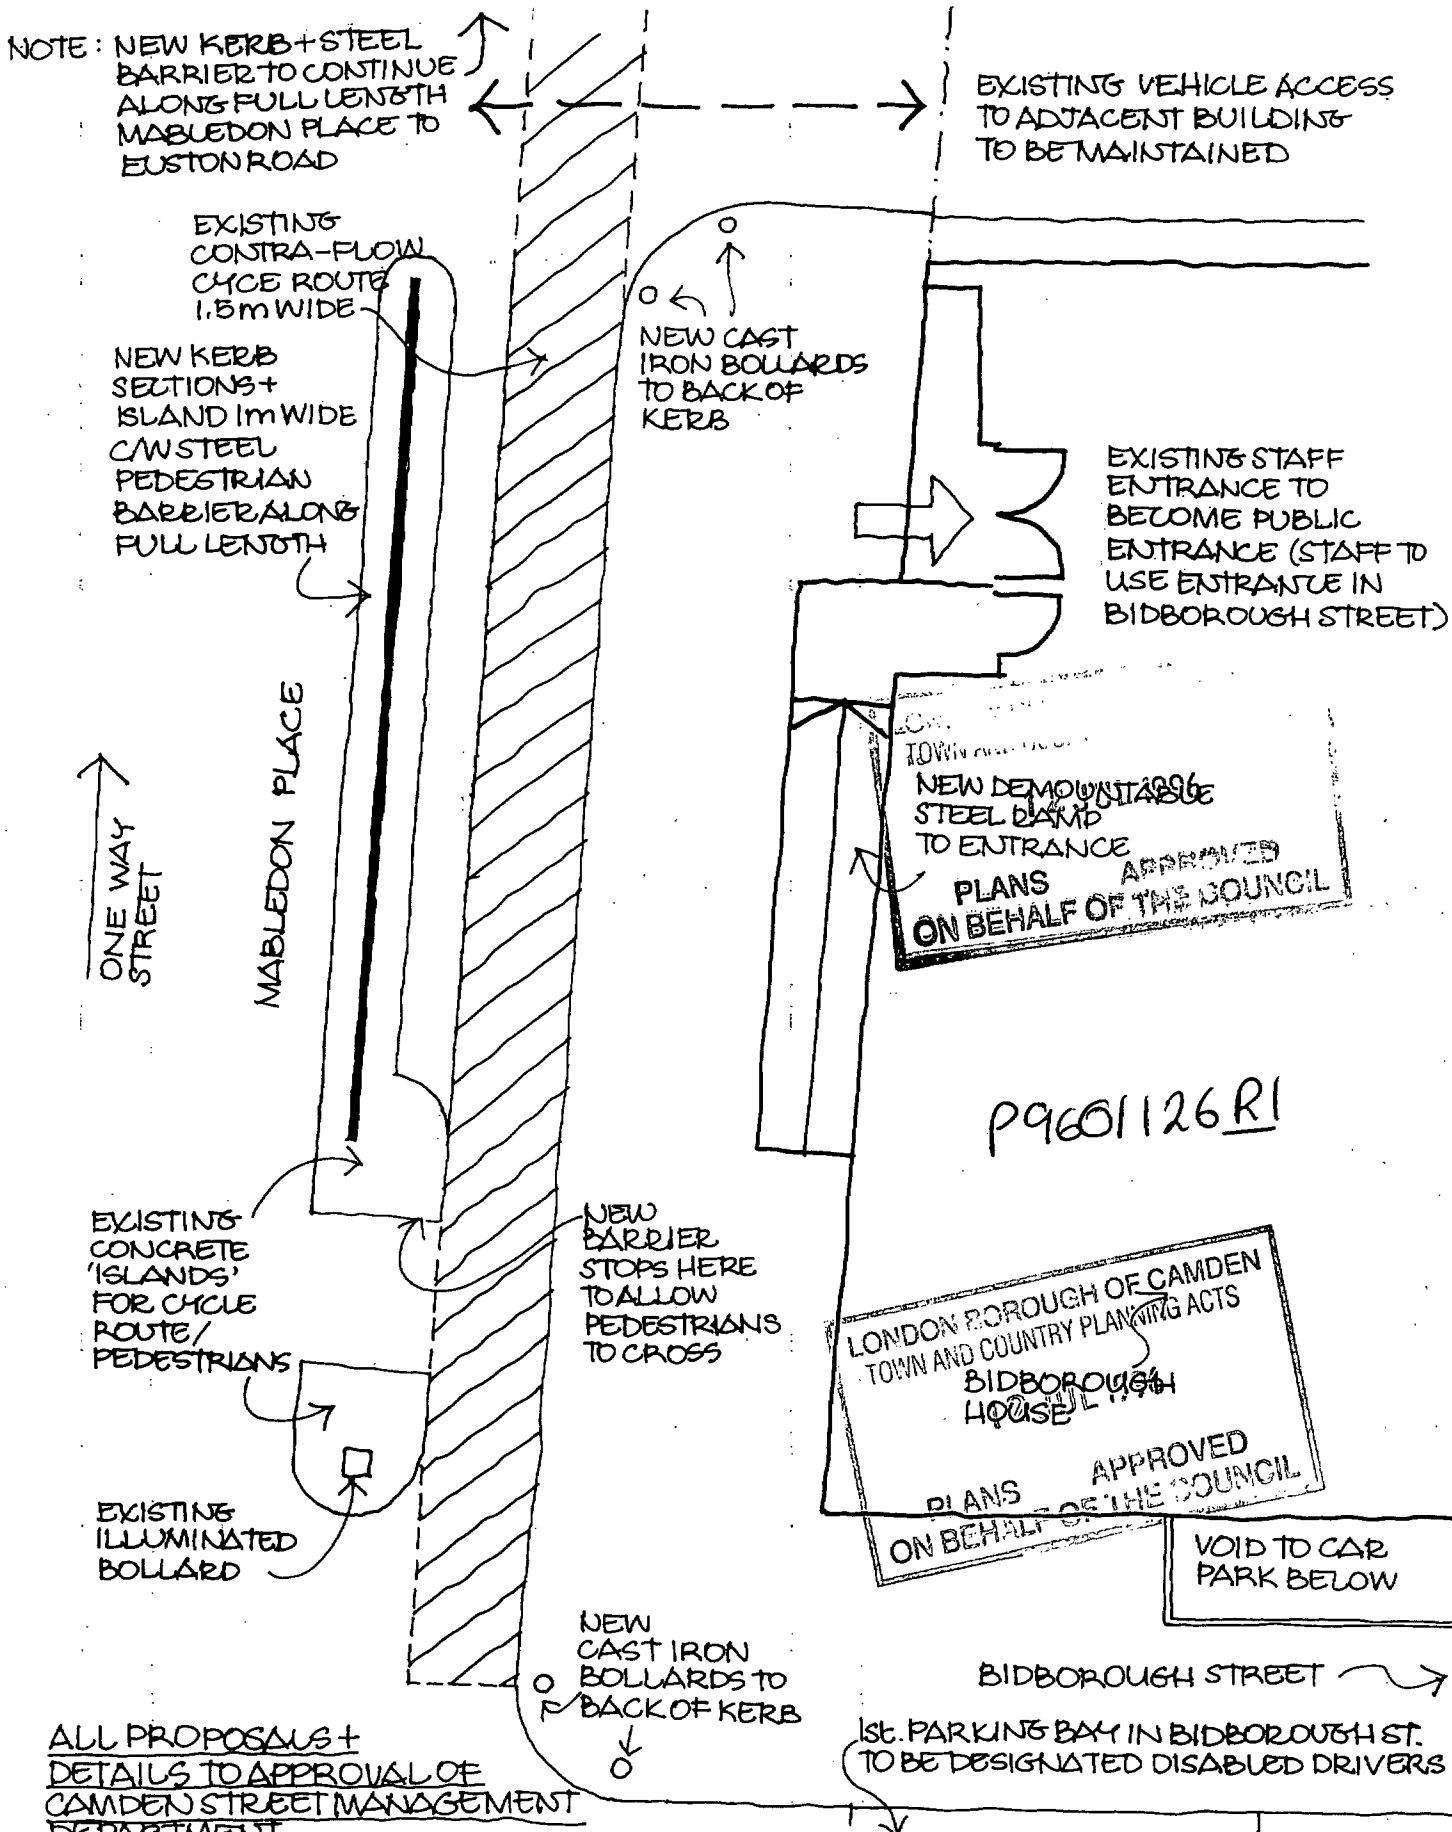 NOTE: NEW KERB + STEEL
BARRIER TO CONTINUE
ALONG FULL LENGTH
MABLEDON PLACE TO
EUSTON ROAD
EXISTING VEHICLE ACCESS
TO ADJACENT BUILDING
TO BE MAINTAINED
EXISTING
CONTRA-FLOW
CYCE ROUTE
1.5m WIDE
NEW CAST
IRON BOLLARDS
TO BACK OF
KERB
NEW KERB
SECTIONS +
ISLAND 1m WIDE
C/W STEEL
PEDESTRIAN
BARRIER ALONG
FULL LENGTH
EXISTING STAFF
ENTRANCE TO
BECOME PUBLIC
ENTRANCE (STAFF TO
USE ENTRANCE IN
BIDBOROUGH STREET)
MABLEDON PLACE
ONE WAY
STREET
TOWN
NEW DEMOUNTABLE
STEEL RAMP
TO ENTRANCE
PLANS APPROVED
ON BEHALF OF THE COUNCIL
P9601126 R1
EXISTING
CONCRETE
'ISLANDS'
FOR CYCLE
ROUTE/
PEDESTRIANS
NEW
BARRIER
STOPS HERE
TO ALLOW
PEDESTRIANS
TO CROSS
LONDON BOROUGH OF CAMDEN
TOWN AND COUNTRY PLANNING ACTS
BIDBOROUGH
HOUSE
PLANS APPROVED
ON BEHALF OF THE COUNCIL
EXISTING
ILLUMINATED
BOLLARD
VOID TO CAR
PARK BELOW
NEW
CAST IRON
BOLLARDS TO
BACK OF KERB
BIDBOROUGH STREET
1st. PARKING BAY IN BIDBOROUGH ST.
TO BE DESIGNATED DISABLED DRIVERS
ALL PROPOSALS +
DETAILS TO APPROVAL OF
CAMDEN STREET MANAGEMENT
DEPARTMENT